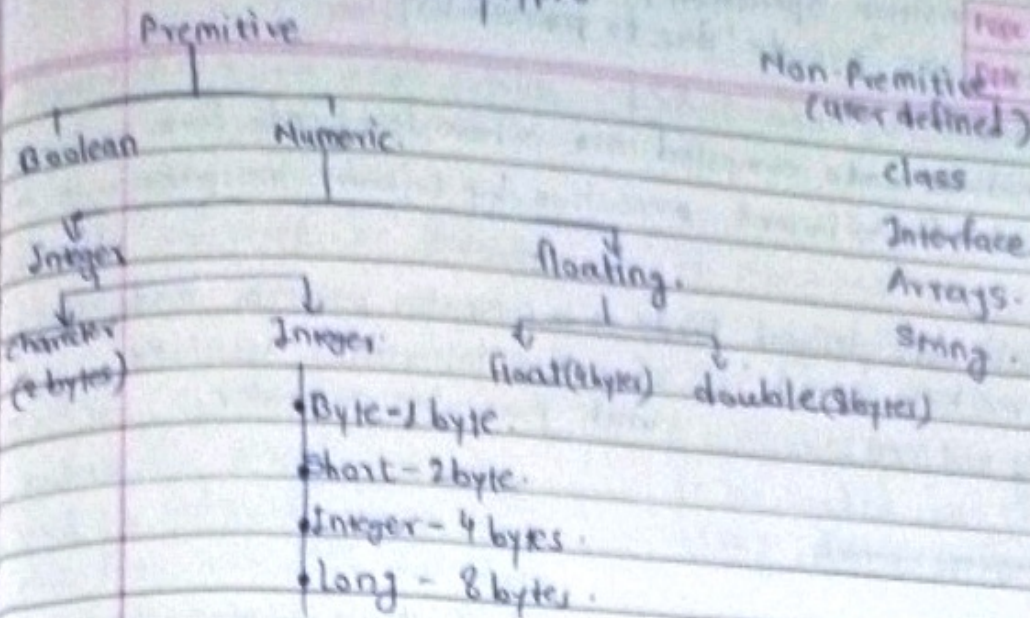 Premitive
Non-Premitive
(user defined)
Boolean
Numeric
class
Interface
Integer
floating.
Arrays.
character
Integer
String.
float(4bytes)
double(8bytes)
bytes)
Byte-1 byte
Short-2byte.
Integer-4 bytes.
Long - 8 bytes.